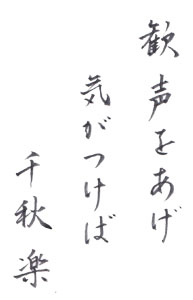 歓声をあげ
気がつけば
千秋楽